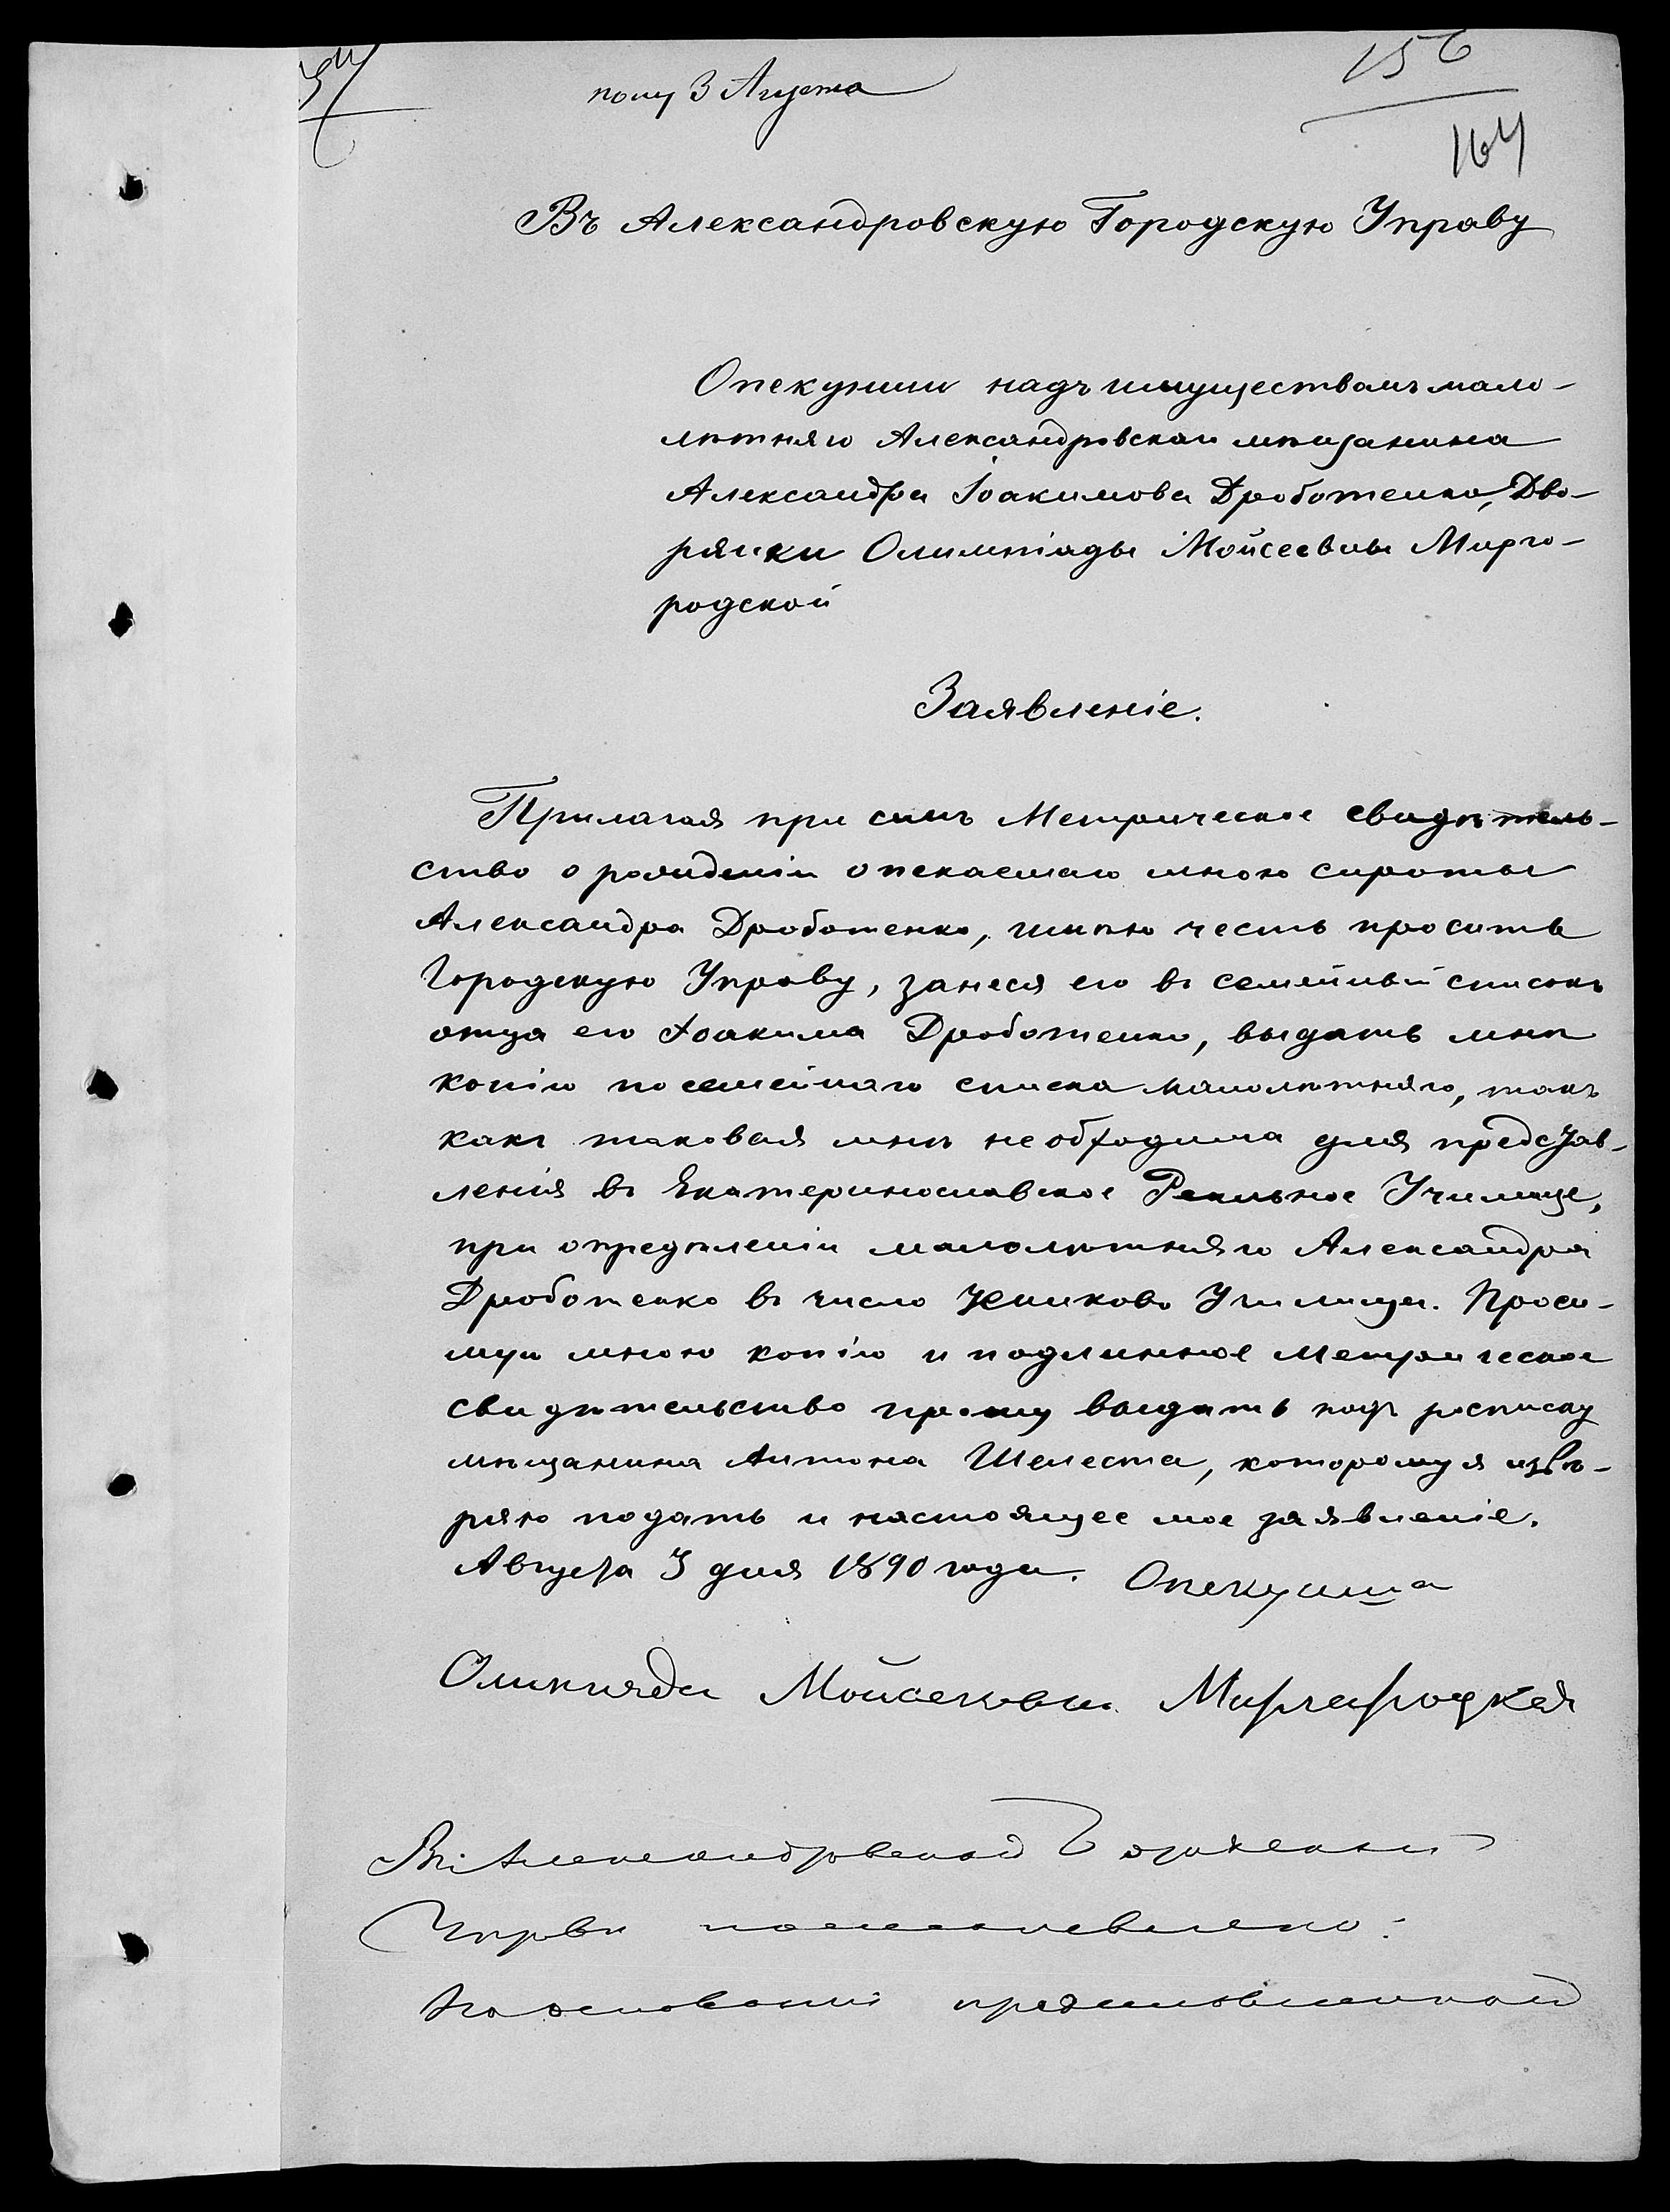 156
полу 3 Августа
164
Въ Александровскую Городскую Управу
Опекунши надъ имуществомъ мало-
лѣтняго Александровскаго мѣщанина
Александра Іоакимова Дроботенко, Дво-
рянки Олимпіады Мойсеевны Мирго-
родской
Заявленіе.
Прилагая при семъ Метрическое свидѣтель-
ство о рожденіи опекаемаго мною сироты
Александра Дроботенко, имѣю честь просить
Городскую Управу, занеся его въ семейный списокъ
отца его Іоакима Дроботенко, выдать мнѣ
копію посемейнаго списка малолѣтняго, такъ
какъ таковая мнѣ необходима для представ-
ленія въ Екатеринославское Реальное Училище,
при опредѣленіи малолѣтняго Александра
Дроботенко въ число учениковъ Училища. Проси-
мую мною копію и подлинное Метрическое
свидѣтельство прошу выдать подъ росписку
мѣщанина Антона Шелеста, которому я ввѣ-
ряю подать и настоящее мое заявленіе.
Августа 3 дня 1890 года. Опекунша
Олимпияда Мойсеевна Миргородская
Въ Александровской Городской
Управѣ постановлено:
На основаніи предъявленной